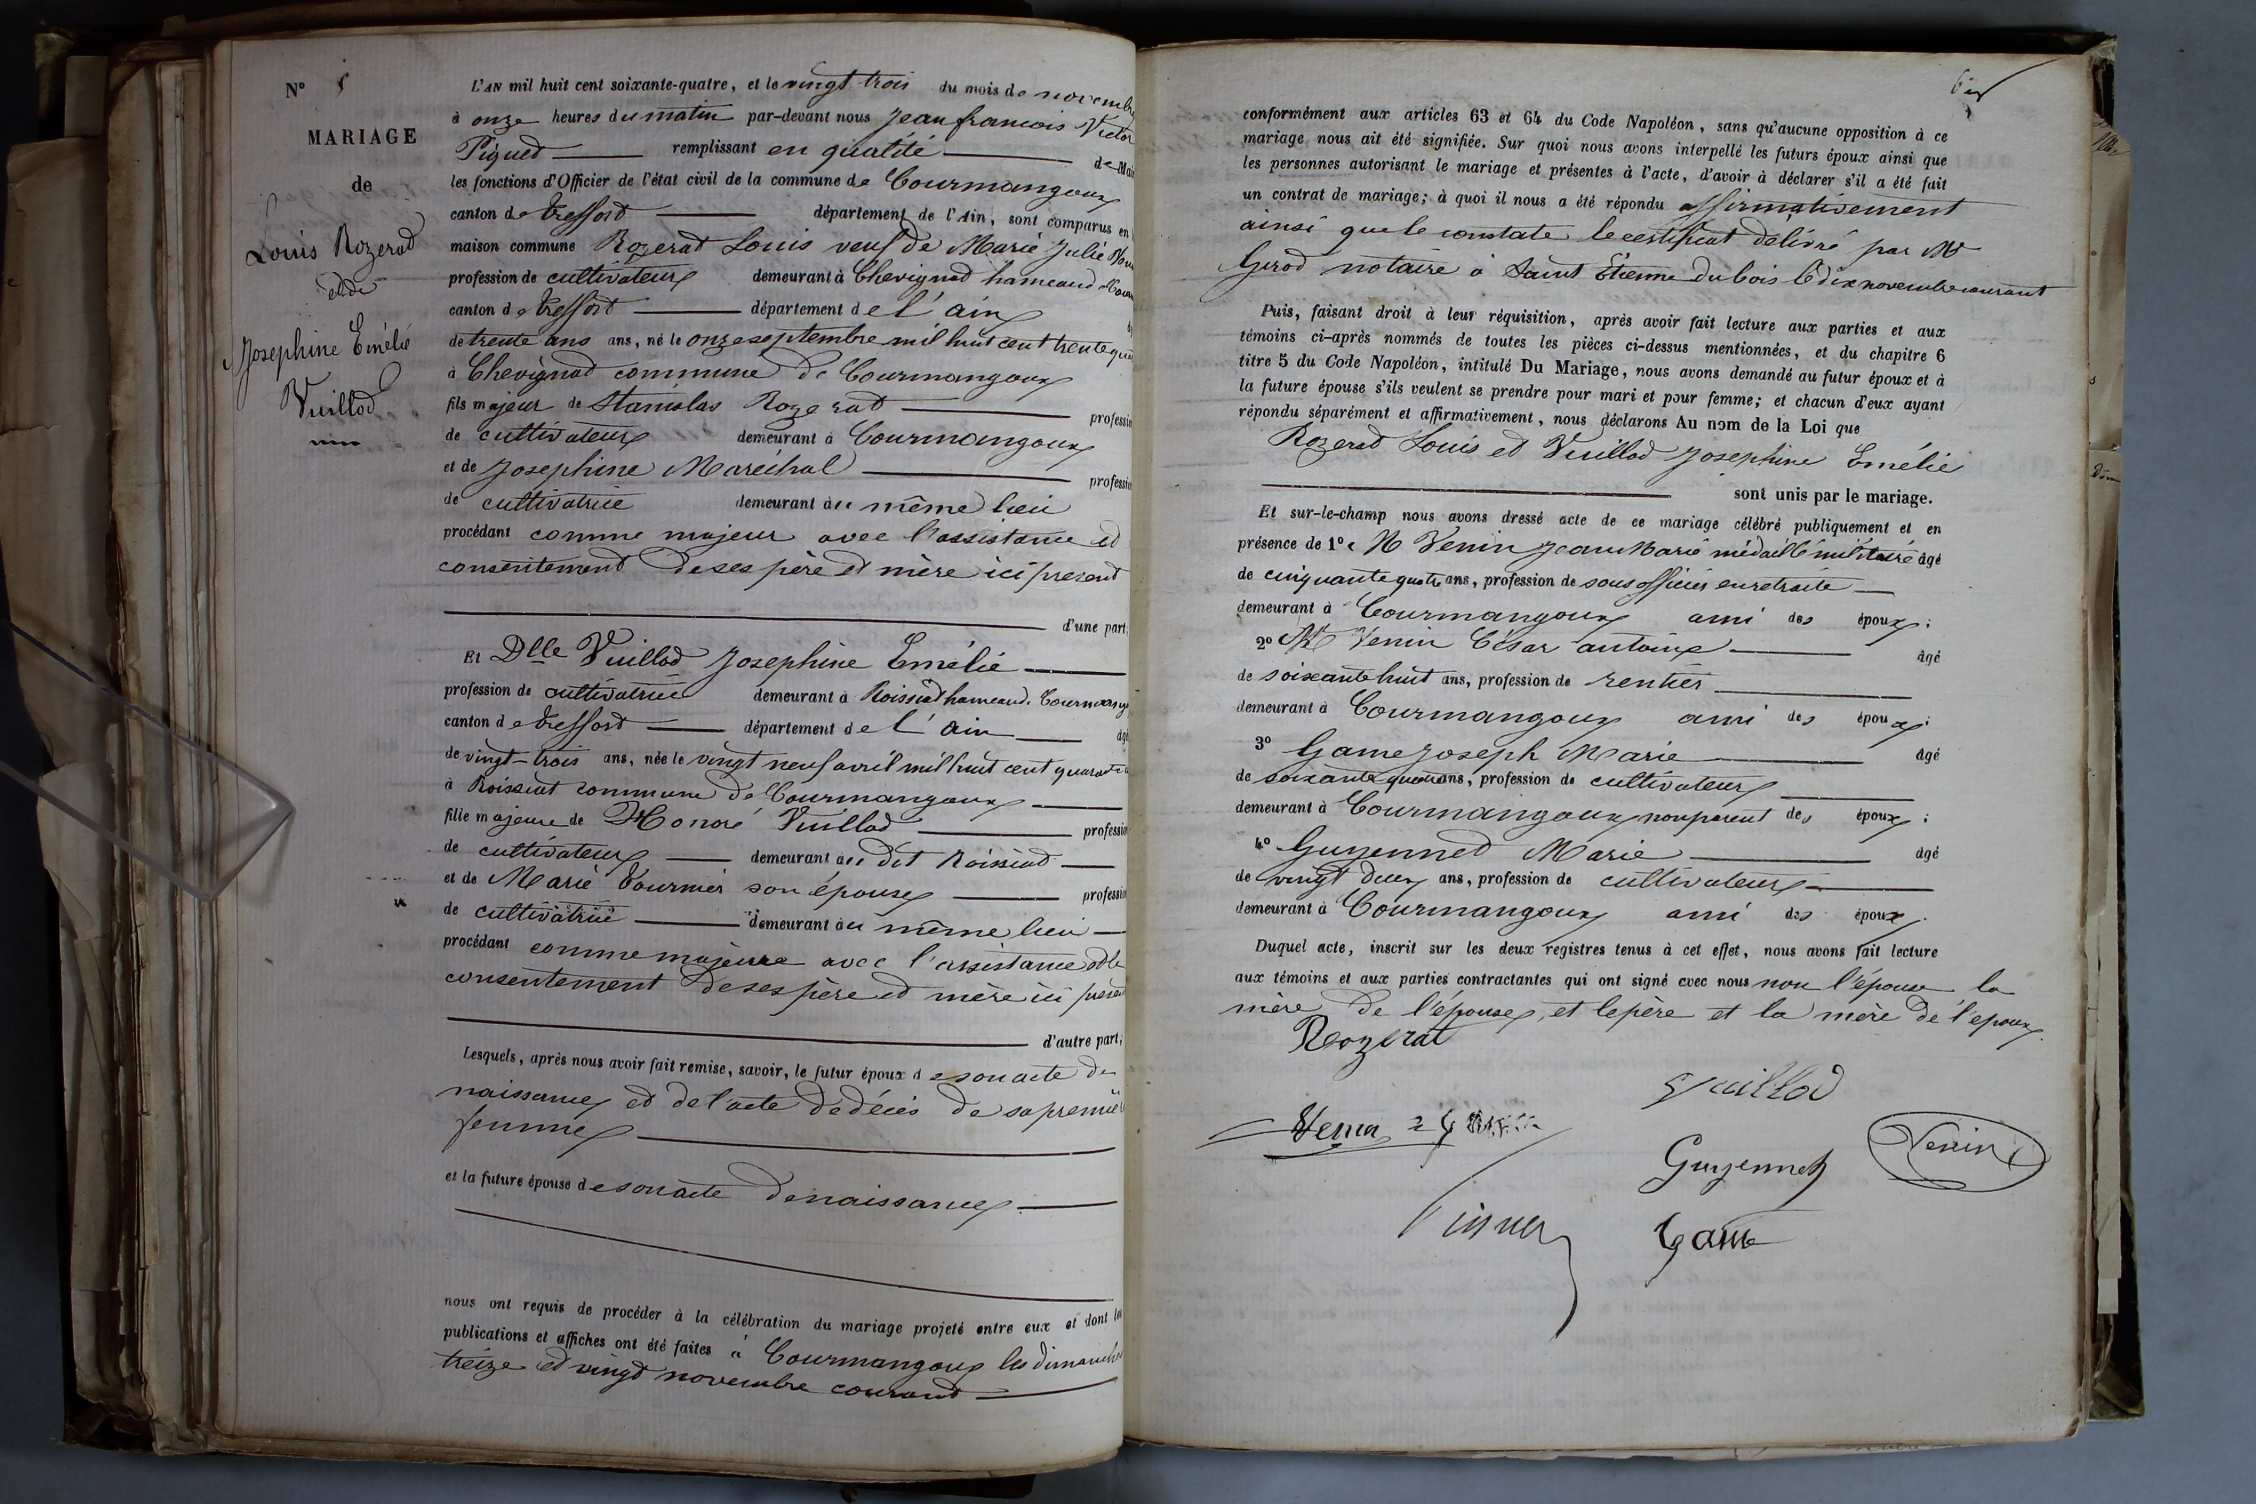 N° 8
MARIAGE
de
Louis Rozerat
et de
Josephine Emélie
Vuillod
L'AN mil huit cent soixante-quatre, et le vingt trois du mois de novembre
à onze heures du matin par-devant nous Jean francois Victor
Piqued remplissant en qualité de Mai
les fonctions d'Officier de l'état civil de la commune de Courmangoux
canton de treffort département de l'Ain, sont comparus en
maison commune Rozerat Louis veuf de Marie Julie
profession de cultivateur demeurant à Chevignad hameau
canton de treffort département de l'ain
de trente ans ans, né le onze septembre mil huit cent trente
à Chevignad commune de Courmangoux
fils majeur de Stanislas Rozerat profession
de cultivateur demeurant à Courmangoux
et de Josephine Maréchal profession
de cultivatrice demeurant au même lieu
procédant comme majeur avec l'assistance et
consentement de ses père et mère ici present
d'une part,
Et Dlle Vuillod Josephine Emélie
profession de cultivatrice demeurant à Roissiat hameau. Courmang
canton de treffort département de l'ain âgé
de vingt-trois ans, née le vingt neuf avril mil huit cent quarante
à Roissiat commune de Courmangoux
fille majeure de Honoré Vuillod profession
de cultivateur demeurant au dit Roissiad
et de Marie Fournier son épouse profession
de cultivatrice demeurant au même lieu
procédant comme majeure avec l'assistance et le
consentement de ses père et mère ici present
d'autre part;
Lesquels, après nous avoir fait remise, savoir, le futur époux de son acte de
naissance et de l'acte de décès de sa premiè
femme
et la future épouse de son acte de naissance
nous ont requis de procéder à la célébration du mariage projeté entre eux et dont les
publications et affiches ont été faites à Courmangoux les dimanches
treize et vingt novembre courant
conformément aux articles 63 et 64 du Code Napoléon, sans qu'aucune opposition à ce
mariage nous ait été signifiée. Sur quoi nous avons interpellé les futurs époux ainsi que
les personnes autorisant le mariage et présentes à l'acte, d'avoir à déclarer s'il a été fait
un contrat de mariage; à quoi il nous a été répondu affirmativement
ainsi que le constate le certificat délivré par Me
Girod notaire à Saint Étienne du bois le dix novembre courant
Puis, faisant droit à leur réquisition, après avoir fait lecture aux parties et aux
témoins ci-après nommés de toutes les pièces ci-dessus mentionnées, et du chapitre 6
titre 5 du Code Napoléon, intitulé Du Mariage, nous avons demandé au futur époux et à
la future épouse s'ils veulent se prendre pour mari et pour femme; et chacun d'eux ayant
répondu séparément et affirmativement, nous déclarons Au nom de la Loi que
Rozerad Louis et Vuillod Josephine Emélie
sont unis par le mariage.
Et sur-le-champ nous avons dressé acte de ce mariage célébré publiquement et en
présence de 1° Venin Jean Marie médaillé militaire âgé
de cinquante quatre ans, profession de sous officier en retraite
demeurant à Courmangoux ami des époux;
2° Venin César antoine âgé
de soixante huit ans, profession de rentier
demeurant à Courmangoux ami des époux;
3° Game Joseph Marie âgé
de soixante quatre ans, profession de cultivateur
demeurant à Courmangoux non parent des époux;
4° Guyenned Marie âgé
de vingt deux ans, profession de cultivateur
demeurant à Courmangoux ami des époux.
Duquel acte, inscrit sur les deux registres tenus à cet effet, nous avons fait lecture
aux témoins et aux parties contractantes qui ont signé avec nous non l'épouse la
mère de l'épouse, et le père et la mère de l'époux.
Rozerat
Vuillod
Venin
Guyennet
Venin
Piquet
Game